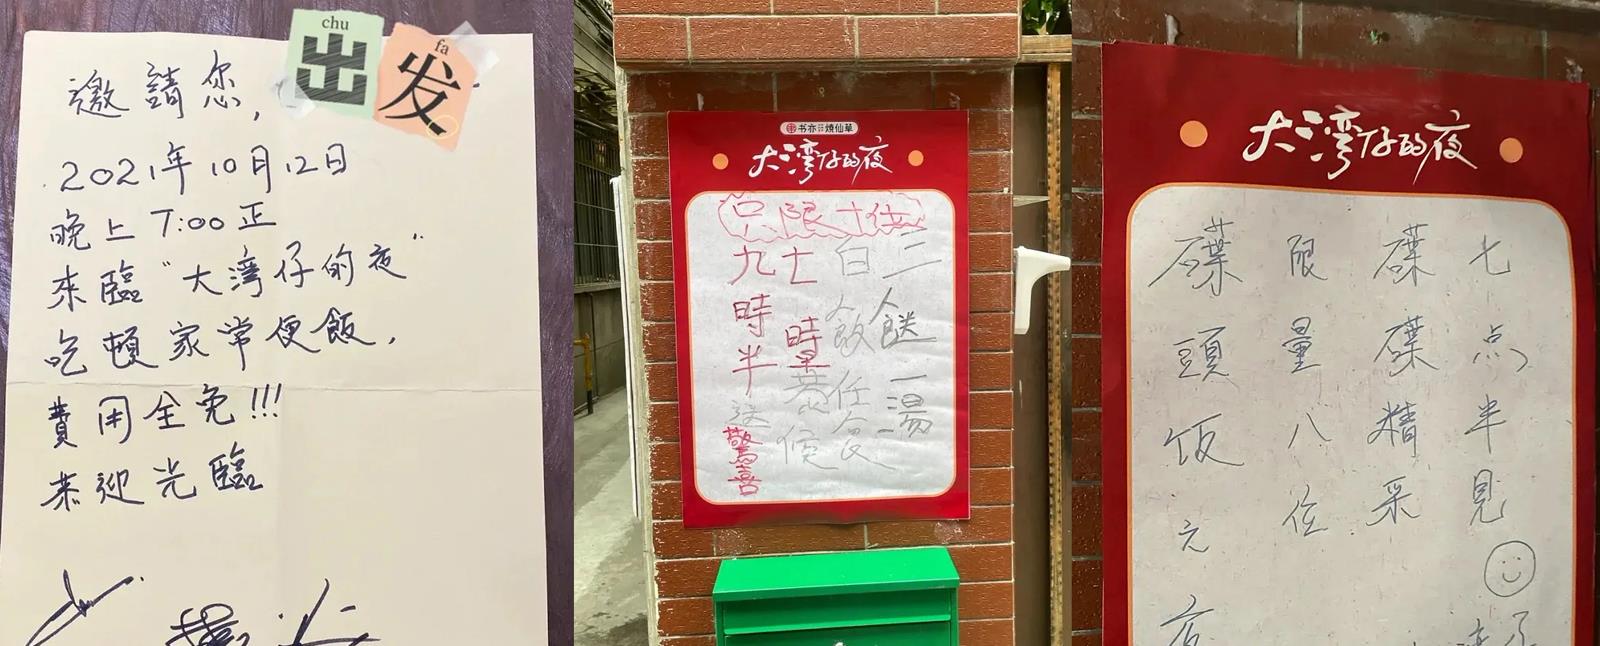 chu fa
出发
邀請您,
2021年10月12日
晚上7:00正
來臨"大灣仔的夜"
吃頓家常便飯,
費用全免!!!
恭迎光臨
书亦燒仙草
大湾仔的夜
只限十位
二餸一湯
白飯任食
七時恭候
九時半送驚喜
大湾仔的夜
七点半見
碟碟精采
限量八位
碟頭饭之夜